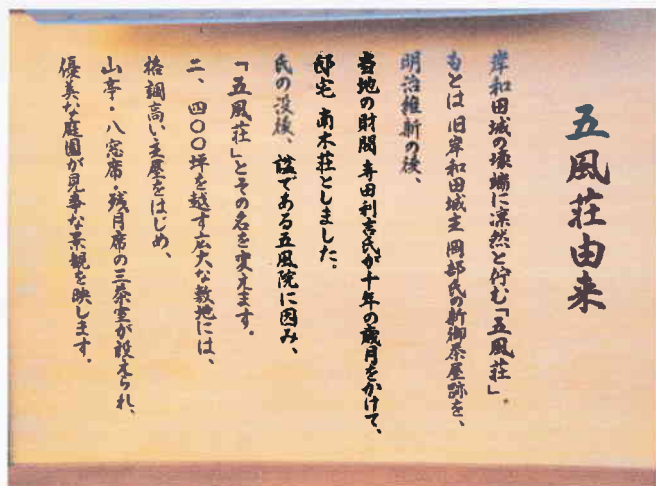 五風荘由来
岸和田城の壕端に凛然と佇む「五風荘」。
もとは 旧岸和田城主 岡部氏の新御茶屋跡を、
明治維新の後、
当地の財閥 寺田利吉氏が十年の歳月をかけて、
邸宅 南木荘としました。
氏の没後、諡である五風院に因み、
「五風荘」とその名を変えます。
二、四〇〇坪を越す広大な敷地には、
格調高い主屋をはじめ、
山亭・八窓席・残月席の三茶室が設えられ、
優美な庭園が見事な景観を映します。